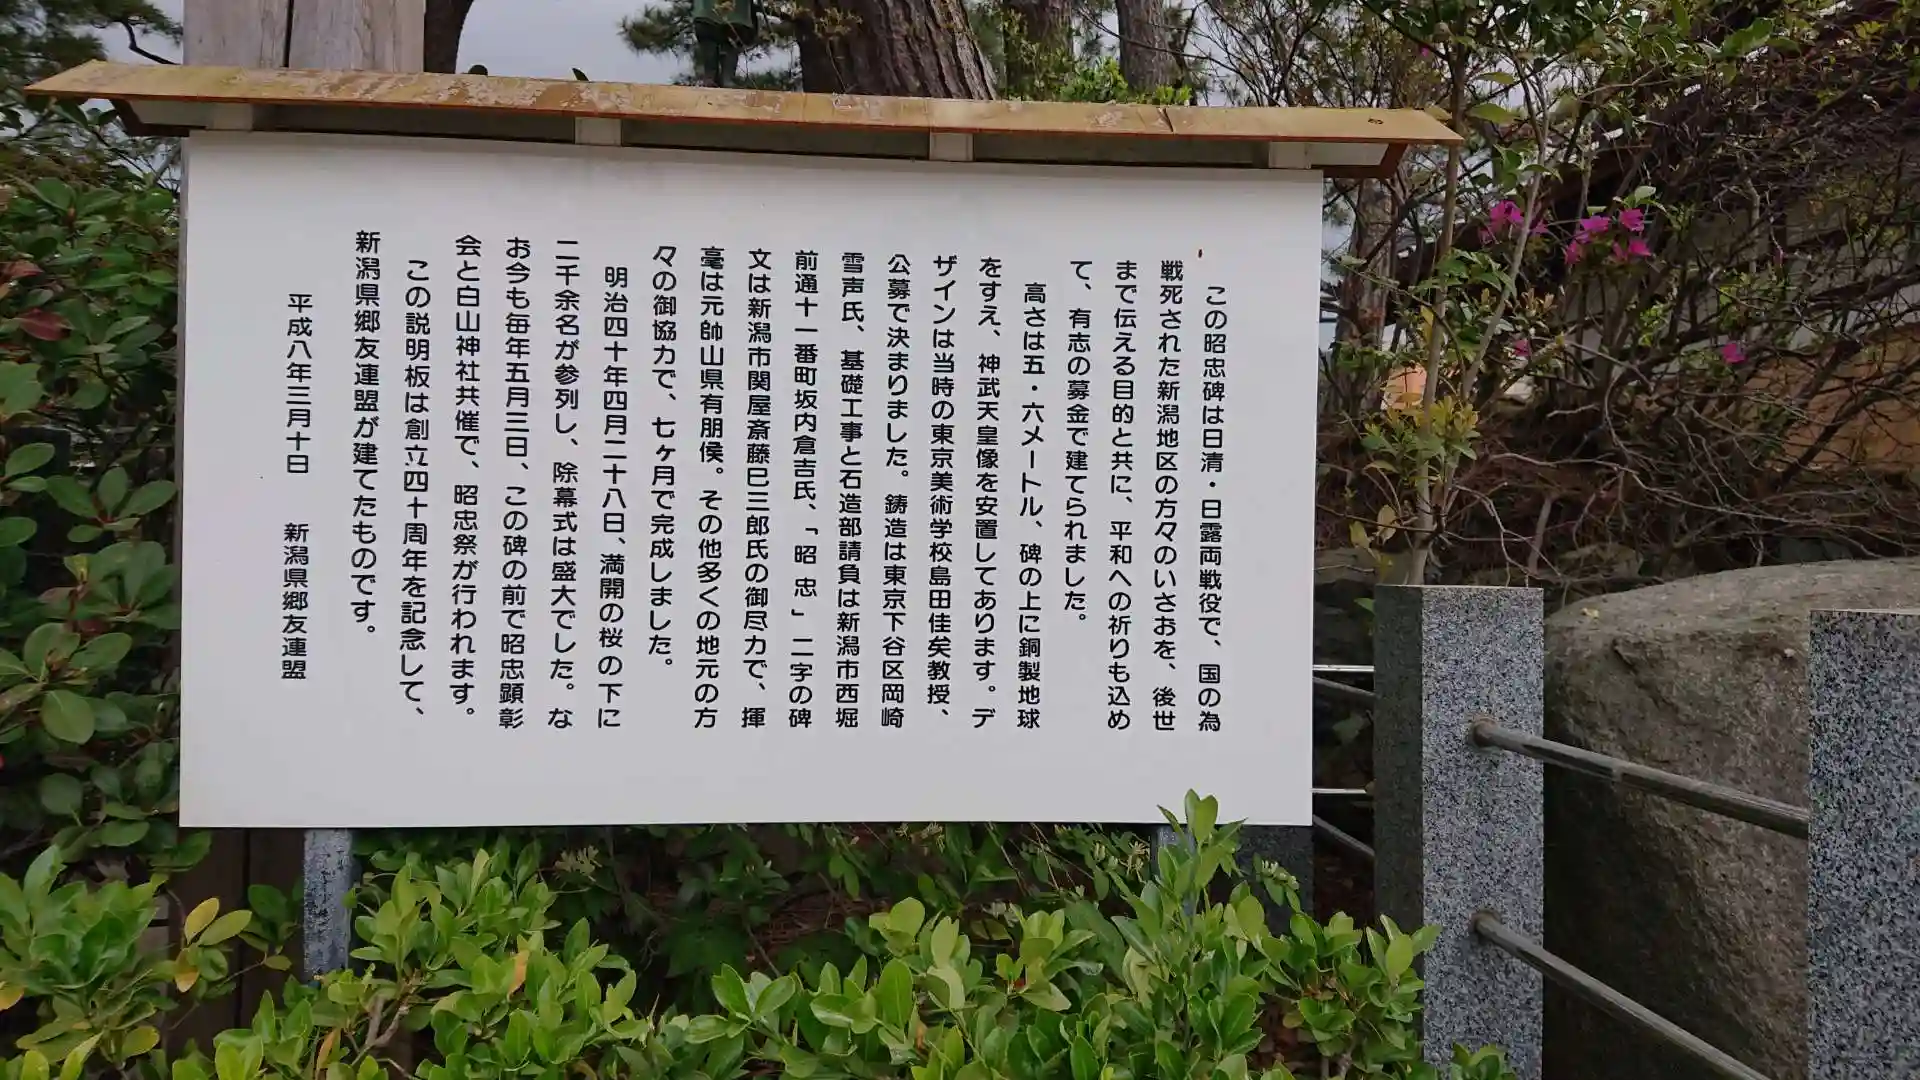 この昭忠碑は日清・日露両戦役で、国の為
戦死された新潟地区の方々のいさおを、後世
まで伝える目的と共に、平和への祈りも込め
て、有志の募金で建てられました。
高さは五・六メートル、碑の上に銅製地球
をすえ、神武天皇像を安置してあります。デ
ザインは当時の東京美術学校島田佳矣教授、
公募で決まりました。鋳造は東京下谷区岡崎
雪声氏、基礎工事と石造部請負は新潟市西堀
前通十一番町坂内倉吉氏、「昭忠」二字の碑
文は新潟市関屋斎藤巳三郎氏の御尽力で、揮
毫は元帥山県有朋侯。その他多くの地元の方
々の御協力で、七ヶ月で完成しました。
明治四十年四月二十八日、満開の桜の下に
二千余名が参列し、除幕式は盛大でした。な
お今も毎年五月三日、この碑の前で昭忠顕彰
会と白山神社共催で、昭忠祭が行われます。
この説明板は創立四十周年を記念して、
新潟県郷友連盟が建てたものです。
平成八年三月十日　新潟県郷友連盟